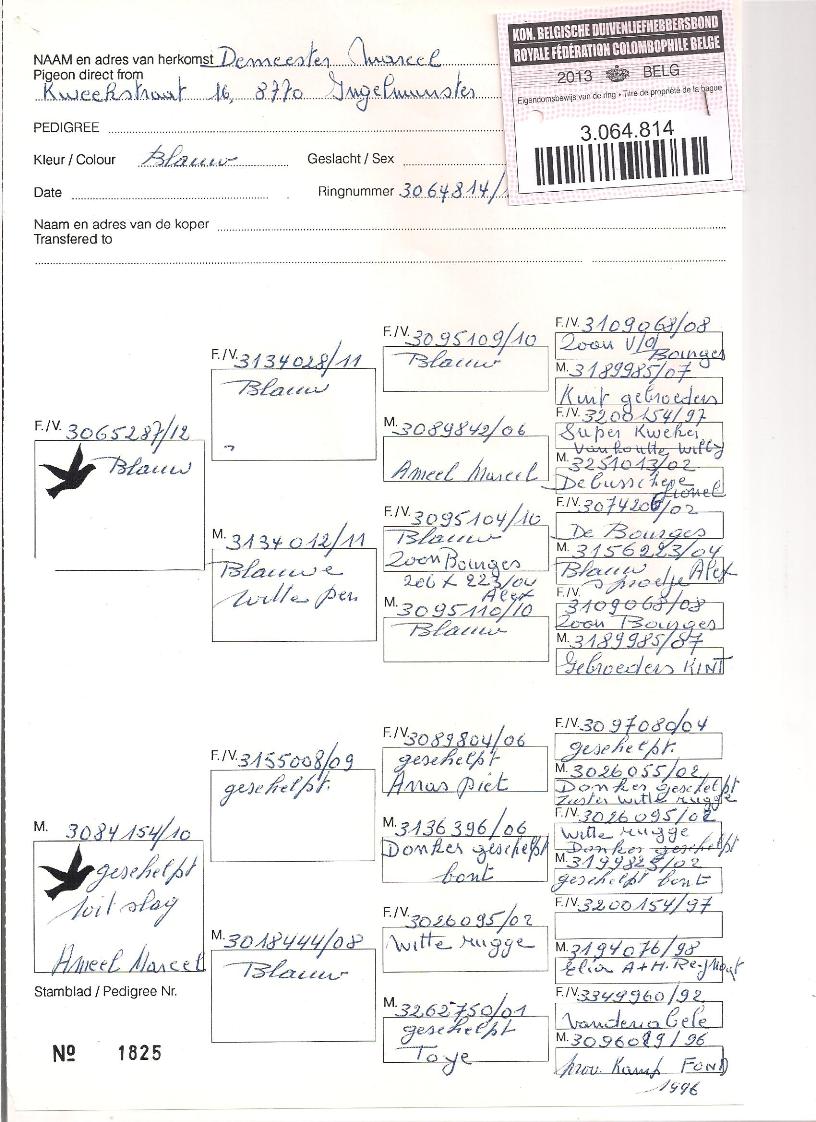 KON. BELGISCHE DUIVENLIEFHEBBERSBOND
ROYALE FÉDÉRATION COLOMBOPHILE BELGE
2013 BELG
Eigendomsbewijs van de ring - Titre de propriété de la bague
3.064.814
NAAM en adres van herkomst Demeester Marcel
Pigeon direct from
Kweekstraat 16, 8770 Ingelmunster
PEDIGREE
Kleur / Colour Blauw Geslacht / Sex
Date Ringnummer 3064814/
Naam en adres van de koper
Transfered to
F./V. 3065287/12
Blauw
F./V. 3134028/11
Blauw
M. 3134012/11
Blauwe
witte pen
F./V. 3095109/10
Blauw
M. 3089842/06
Ameel Marcel
F./V. 3095104/10
Blauw
Zoon Bourges
206 x 223/04
Alex
M. 3095110/10
Blauw
F./V. 3109068/08
Zoon v/d
Bourges
M. 3189985/07
Kint gebroeders
F./V. 3200154/97
Super Kweker
Vanhoutte Willy
M. 3251013/02
Debusschere
Lionel
F./V. 3074206/02
De Bourges
M. 3156223/04
Blauw Alex
F./V. 3109068/08
Zoon Bourges
M. 3189985/87
Gebroeders KINT
M. 3084154/10
geschelpt
wit slag
Ameel Marcel
F./V. 3155008/09
geschelpt.
M. 3018444/08
Blauw
F./V. 3089804/06
geschelpt
Anas Piet
M. 3136396/06
Donker geschelpt
bont
F./V. 3026095/02
witte rugge
M. 3262750/01
geschelpt
Toye
F./V. 3097080/04
geschelpt.
M. 3026055/02
Donker geschelpt
Zuster witte rugge
F./V. 3026095/02
witte rugge
Donker geschelpt
M. 3199825/02
geschelpt bont
F./V. 3200154/97
M. 3194076/98
A+H. Reynaert
F./V. 3349960/92
Vandenabeele
M. 3096089/96
prov. Kamp FOND
1996
Stamblad / Pedigree Nr.
Nº 1825